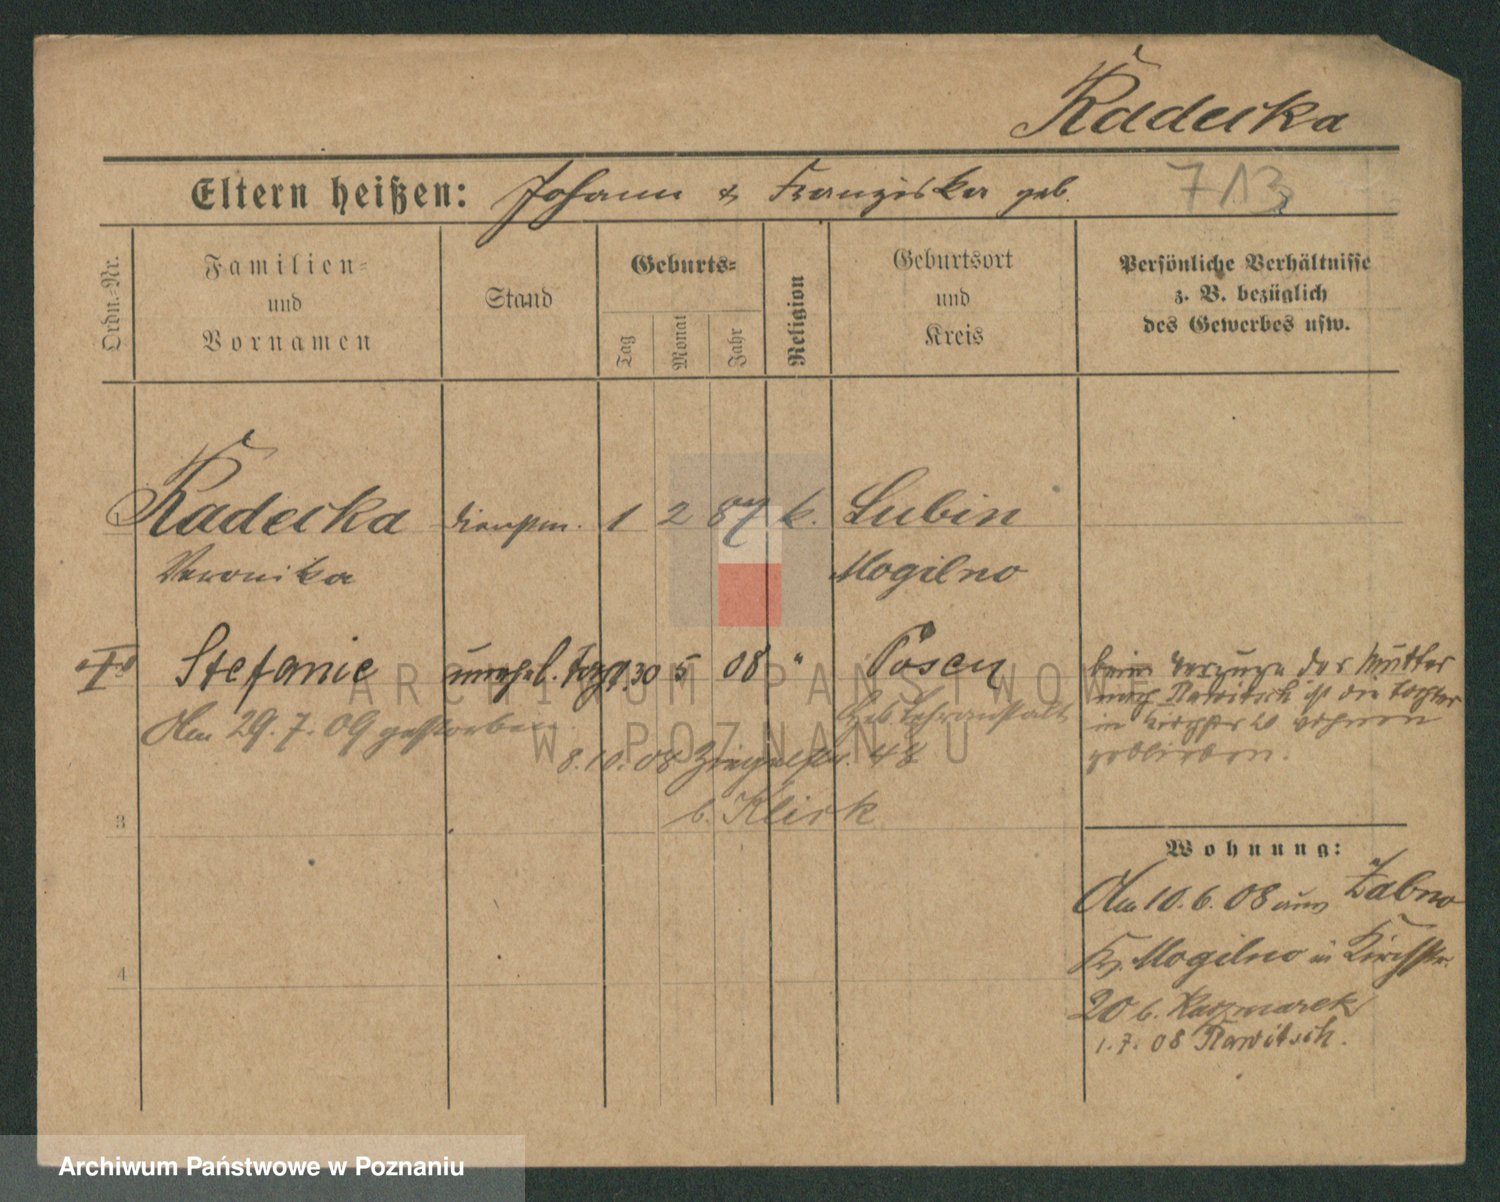 Radecka
Eltern heißen: Johann & Franziska geb.
713
Ordn.-Nr.
Familien-
und
Vornamen
Stand
Geburts-
Tag
Monat
Jahr
Religion
Geburtsort
und
Kreis
Persönliche Verhältnisse
z. B. bezüglich
des Gewerbes usw.
1 Radecka dienstm. 1 2 87 k. Lubin
Veronika Mogilno
Stefanie unehel. 30 5 08 " Posen
Geb. Lehranstalt
Am 29.7.09 gestorben
8.10.08 48
b.
beim Verzuge der Mutter
nach Rawitsch ist die Tochter
in Kirchstr 20 wohnen
geblieben.
3
4
Wohnung:
Am 10.6.08 aus Żabno
Kr. Mogilno in Kirchstr.
20 b. Kaczmarek
1.7.08 Rawitsch.
ARCHIWUM PAŃSTWOWE
W POZNANIU
Archiwum Państwowe w Poznaniu